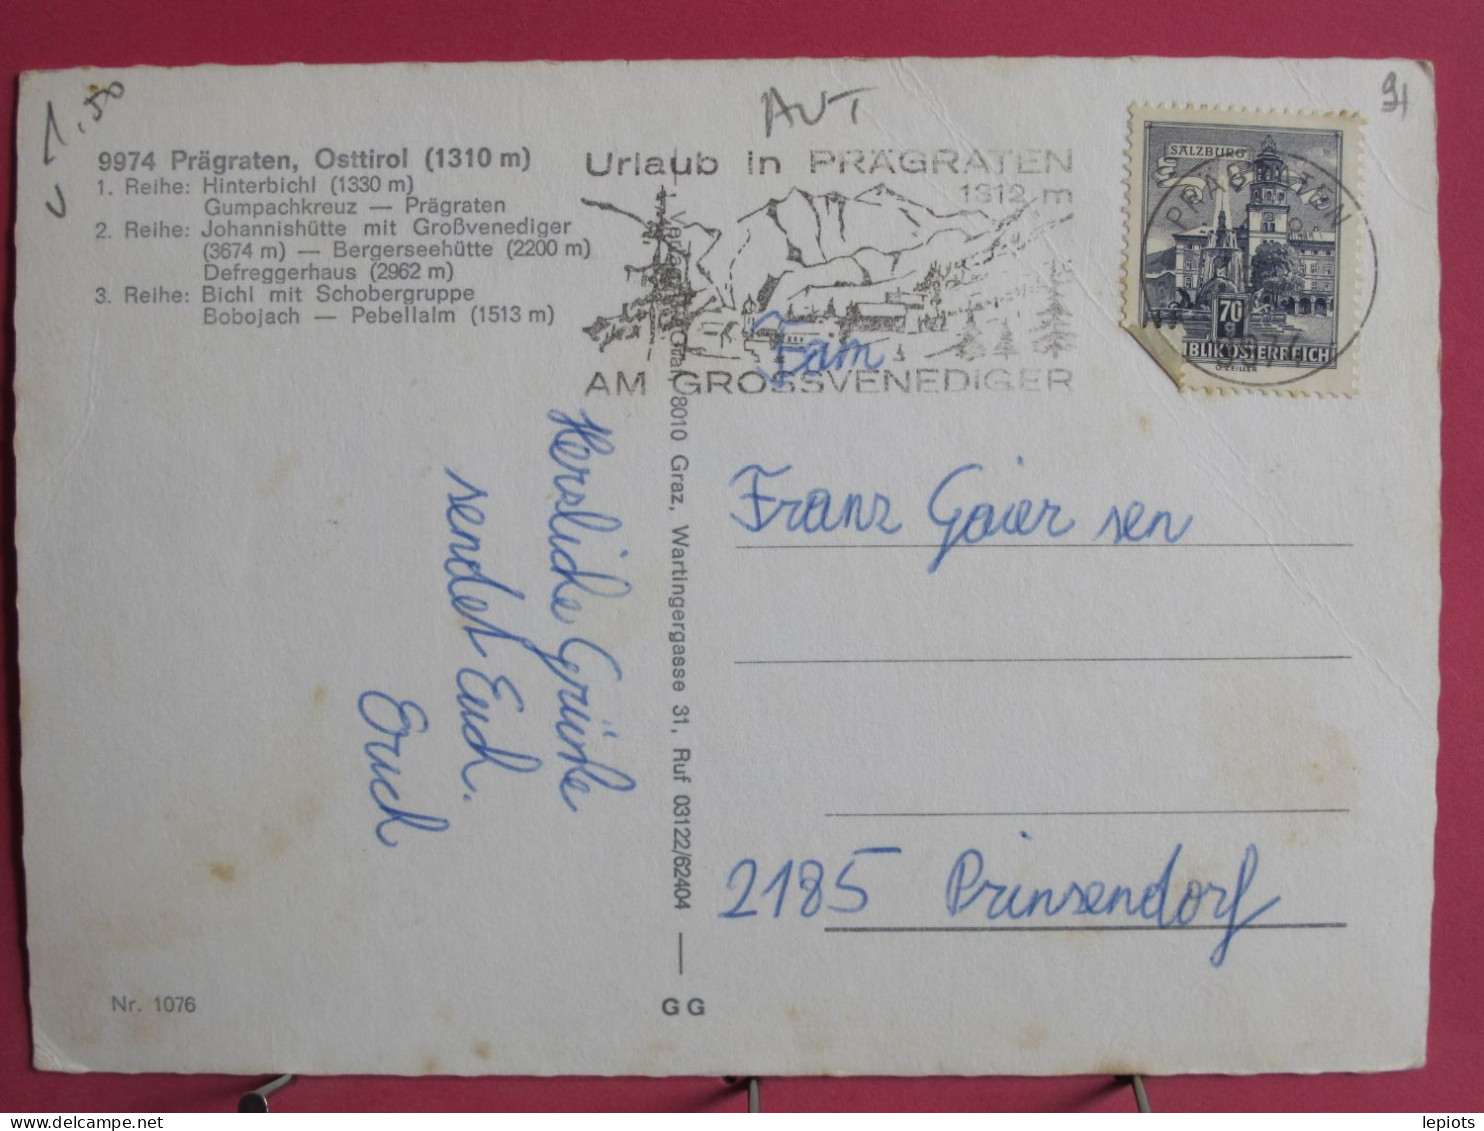 1.50
AUT
9974 Prägraten, Osttirol (1310 m)
1. Reihe: Hinterbichl (1330 m)
Gumpachkreuz — Prägraten
2. Reihe: Johannishütte mit Großvenediger
(3674 m) — Bergerseehütte (2200 m)
Defreggerhaus (2962 m)
3. Reihe: Bichl mit Schobergruppe
Bobojach — Pebellalm (1513 m)
Urlaub in PRÄGRATEN
1312 m
AM GROSSVENEDIGER
SALZBURG
70
g
BLIK OSTERREICH
O. ZEILLER
PRÄGRATEN
9974
Fam
Franz Gaier sen
2185 Prinzendorf
Herzliche Grüße
sendet Euch.
Erich
8010 Graz, Wartingergasse 31, Ruf 03122/62404
Nr. 1076
G G
lepiots